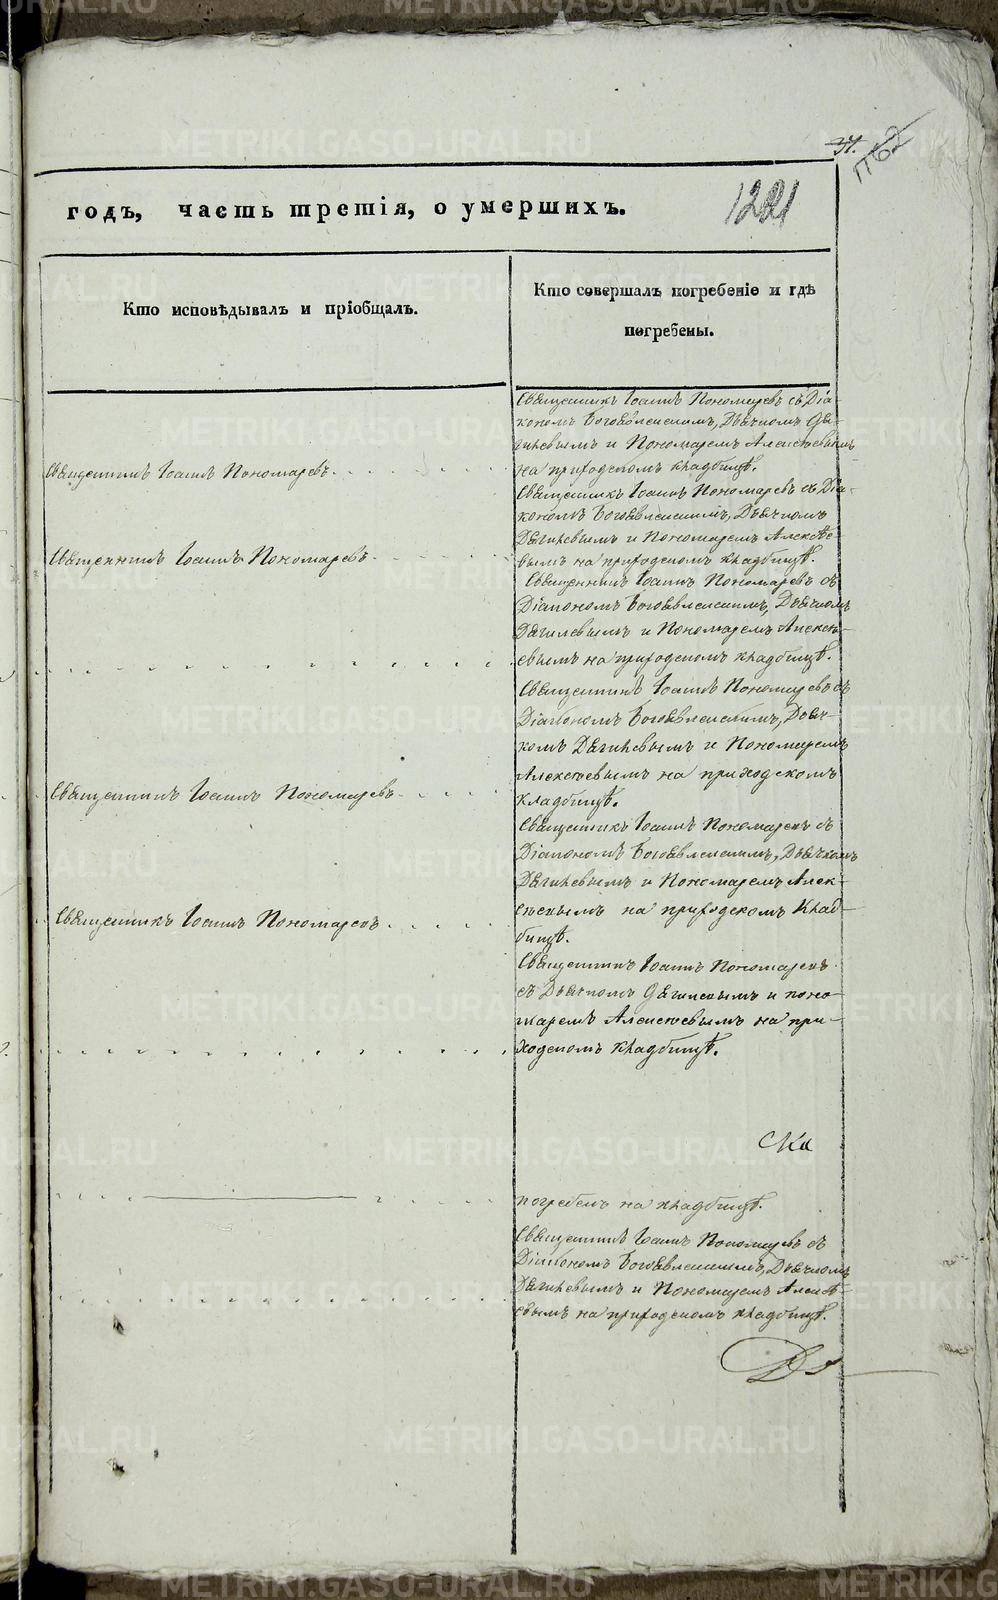 34.
1221
годъ, часть третія, о умершихъ.
Кто исповѣдывалъ и пріобщалъ.
Кто совершалъ погребеніе и гдѣ
погребены.
Священникъ Іоаннъ Пономаревъ с Діа-
кономъ Богоявленскимъ, Дьячкомъ Дя-
гилевымъ и Пономаремъ Алексѣевымъ
на приходскомъ кладбищѣ.
Священникъ Іоаннъ Пономаревъ.
Священникъ Іоаннъ Пономаревъ съ Діа-
кономъ Богоявленскимъ, Дьячкомъ
Дягилевымъ и Пономаремъ Алексѣе-
вымъ на приходскомъ кладбищѣ.
Священникъ Іоаннъ Пономаревъ.
Священникъ Іоаннъ Пономаревъ съ
Діакономъ Богоявленскимъ, Дьячкомъ
Дягилевымъ и Пономаремъ Алексѣ-
евымъ на приходскомъ кладбищѣ.
Священникъ Іоаннъ Пономаревъ съ
Діакономъ Богоявленскимъ, Дьяч-
комъ Дягилевымъ и Пономаремъ
Алексѣевымъ на приходскомъ
кладбищѣ.
Священникъ Іоаннъ Пономаревъ.
Священникъ Іоаннъ Пономаревъ съ
Діакономъ Богоявленскимъ, Дьячкомъ
Дягилевымъ и Пономаремъ Алек-
сѣевымъ на приходскомъ Клад-
бищѣ.
Священникъ Іоаннъ Пономаревъ.
Священникъ Іоаннъ Пономаревъ
съ Дьячкомъ Дягилевымъ и поно-
маремъ Алексѣевымъ на при-
ходскомъ кладбищѣ.
ска
погребенъ на кладбищѣ.
Священникъ Іоаннъ Пономаревъ съ
Діакономъ Богоявленскимъ, Дьячкомъ
Дягилевымъ и Пономаремъ Алексѣ-
евымъ на приходскомъ кладбищѣ.
METRIKI.GASO-URAL.RU